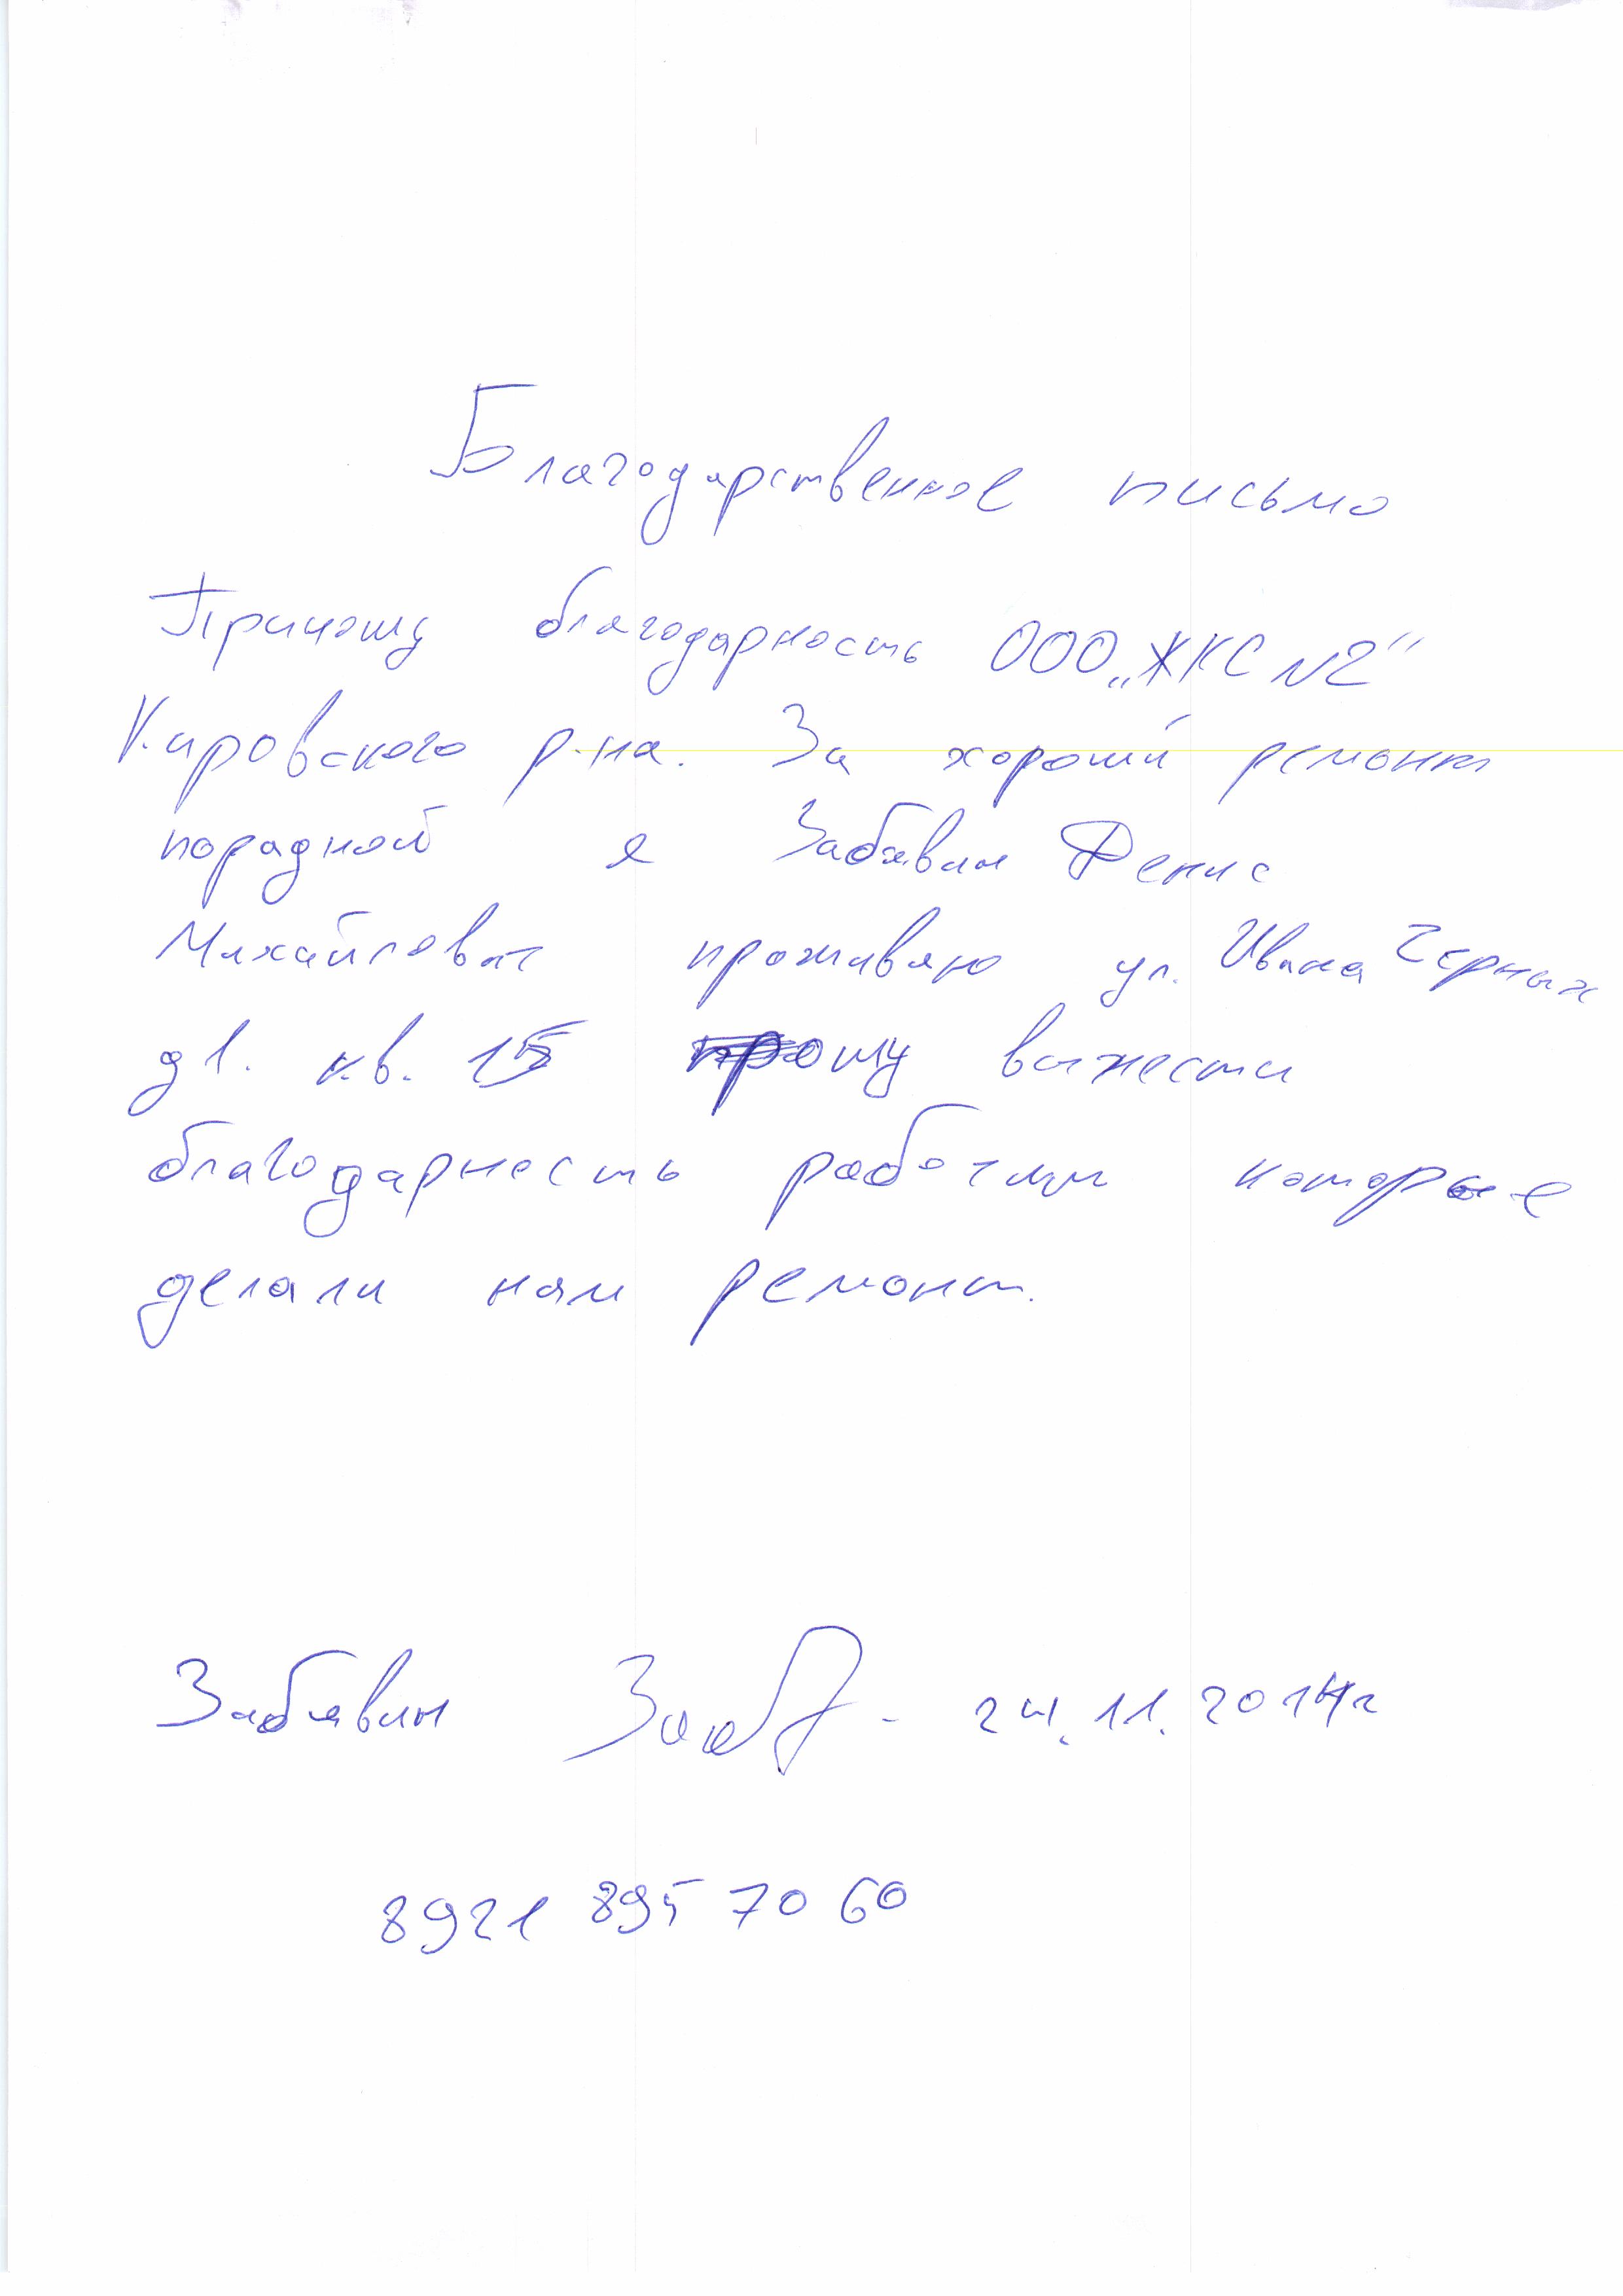 Благодарственное письмо
Приношу благодарность ООО „ЖКС N2"
Кировского р-на. За хороший ремонт
порадной я Забавин Денис
Михайлович проживаю ул. Ивана Черных
д1. кв. 15 прошу вынести
благодарность рабочим которые
делали нам ремонт.
Забавин 24.11.2014г
8921 895 70 60